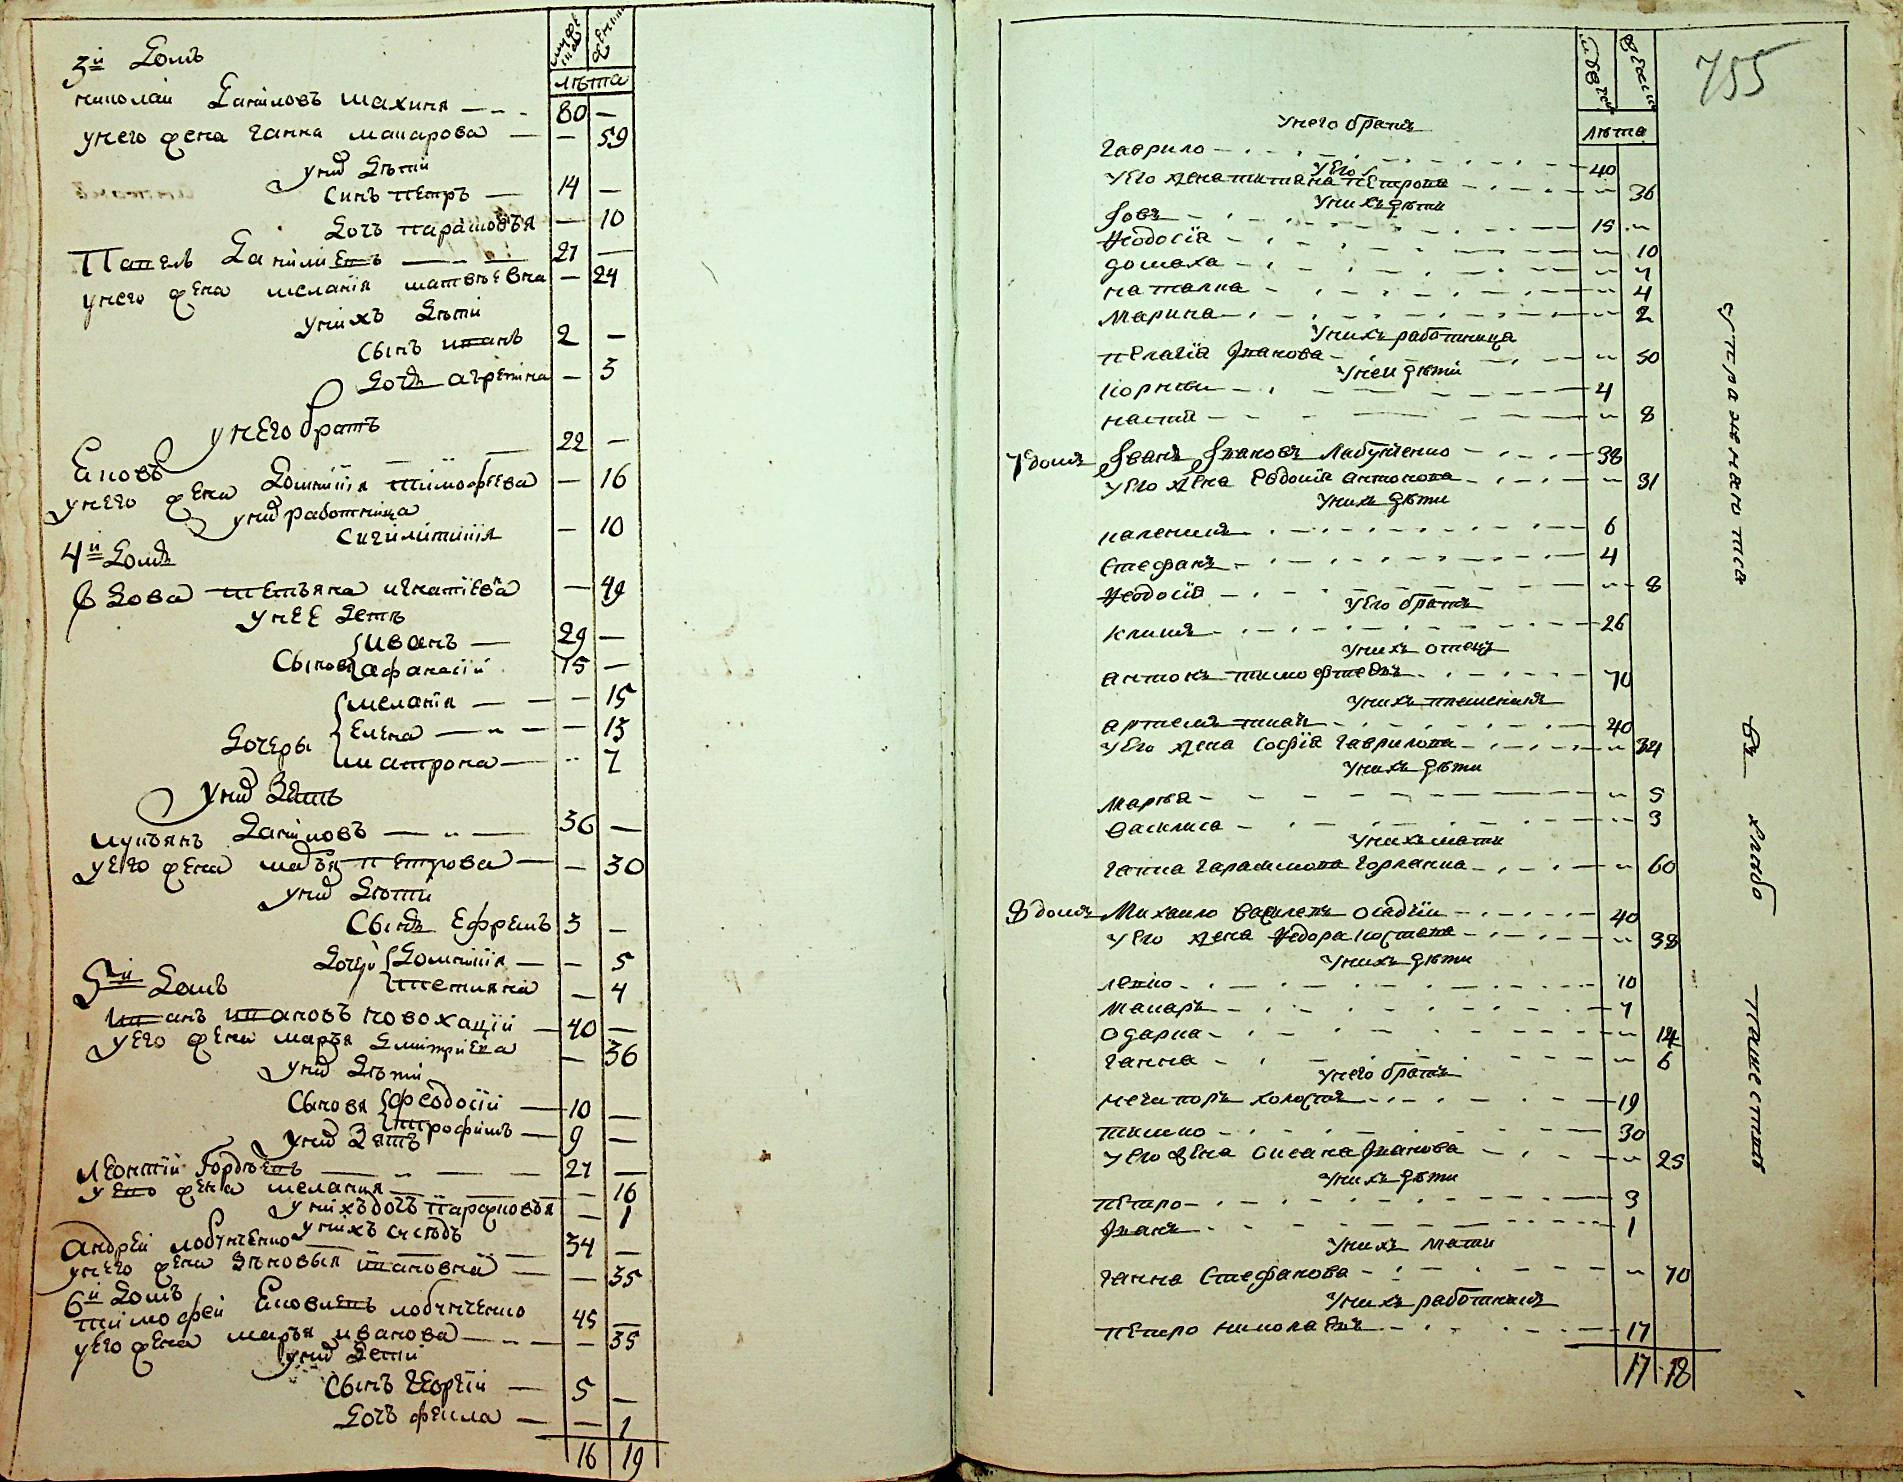 мужеска женска
лѣта
3й Домъ
николай Данїловъ махиня 80 —
унего жена Ганна макарова — 59
унїхъ дѣти
синъ петръ — 14 —
дочъ парасковъя — 10
Павелъ Данїлиевъ 21 —
унего жена меланїя матвѣевна — 24
унїхъ дѣти
Сынъ иванъ 2 —
дочъ агрепина — 3
унего братъ
Яковъ 22 —
унего жена Домнїкїя тимофѣева — 16
унїхъ работнїца
— 10
4й Домъ
вдова тетъяна игнатїева — 49
унее дети
Сынове иванъ — 29 —
афанасїй 15 —
Дочеры меланїя — — 15
Елена — 13
матрона — 7
унїхъ Зять
лукъянъ Данїловъ 36 —
уего жена маръя петрова — 30
унїхъ дѣти
Сынъ Ефремъ 3 —
дочерї Домникїя — 5
тетияна — 4
5й Домъ
иванъ ивановъ новохацїй 40 —
уего жена маръя дмитрїева — 36
унїхъ дѣти
Сыновя феодосїй 10 —
трофимъ 9 —
унїхъ Зять
леонтїй Гордѣевъ 21 —
уево жена мелания — 16
унїхъ дочъ парасковъя — 1
унїхъ сусѣдъ
андрей лобунченко 34 —
унего жена Зѣновыя ивановна — 35
6й Домъ
тимофей Яковлевъ лобунченко 45 —
уего жена маръя иванова — 35
унїхъ дети
Сынъ Георгїй 5 —
дочъ фекла — 1
16 19
755
лѣта
унего братя
Гаврило 40
уего жена татиана петрова 36
унихъ дѣти
15
Феодосїа 10
домаха 7
наталка 4
Марина 2
унихъ работница
пелагїа Іванова 50
унеи дѣти
Корнѣи 4
настя 8
7 домъ Іванъ Івановъ Лабунченко 38
уего жена Евдокїа антонова 31
унихъ дѣти
каленикъ 6
Стефанъ 4
Феодосїа 8
уего братъ
Климъ 26
унихъ отецъ
антонъ тимофѣевъ 70
унихъ племеникъ
артемъ ткачъ 40
уего жена Софїа Гаврилова 34
унихъ дѣти
Марѳа 5
василиса 3
унихъ мати
Ганна Гарасимова Горланка 60
8 домъ Михаило василевъ осадчїи 40
уего жена Федора Костева 38
унихъ дѣти
левко 10
Макаръ 7
одарка 14
Ганна 6
унего братъ
нечипоръ холостъ 19
тимко 30
уего жена оксана Іванова 25
унихъ дѣти
Петро 3
Іванъ 1
унихъ мати
Ганна Стефанова 70
унихъ работникъ
петро николаевъ 17
17 18